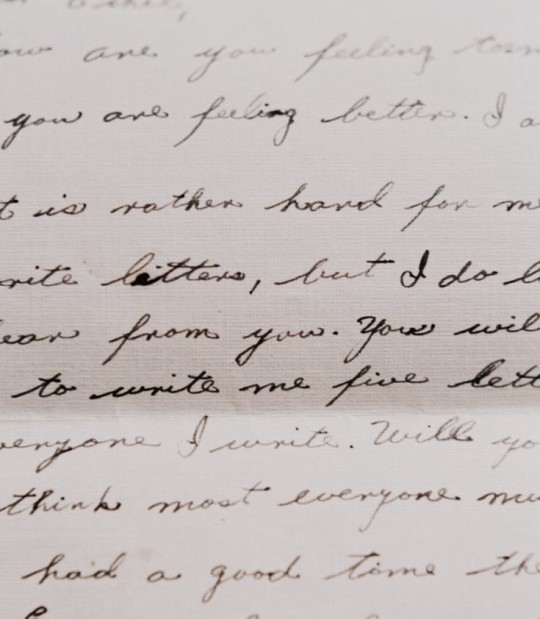 are you feeling
you are feeling better. I
is rather hard for me
letters, but I do
from you. You will
to write me five
I write. Will
think most everyone
had a good time